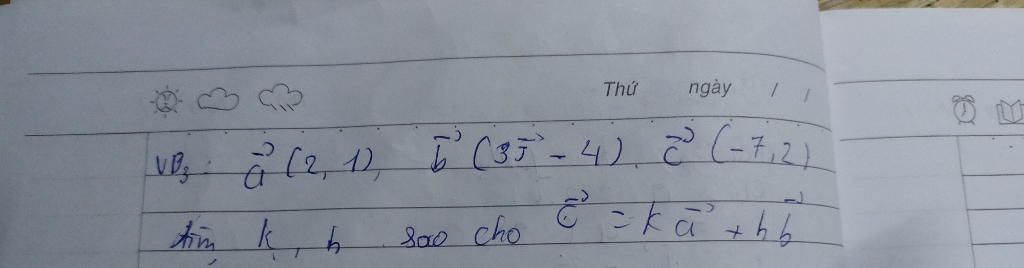 Thứ ngày / /
VD₃: a⃗ (2, 1), b⃗ (3j⃗ - 4). c⃗ (-7,2)
tìm k, h sao cho c⃗ = k a⃗ + h b⃗